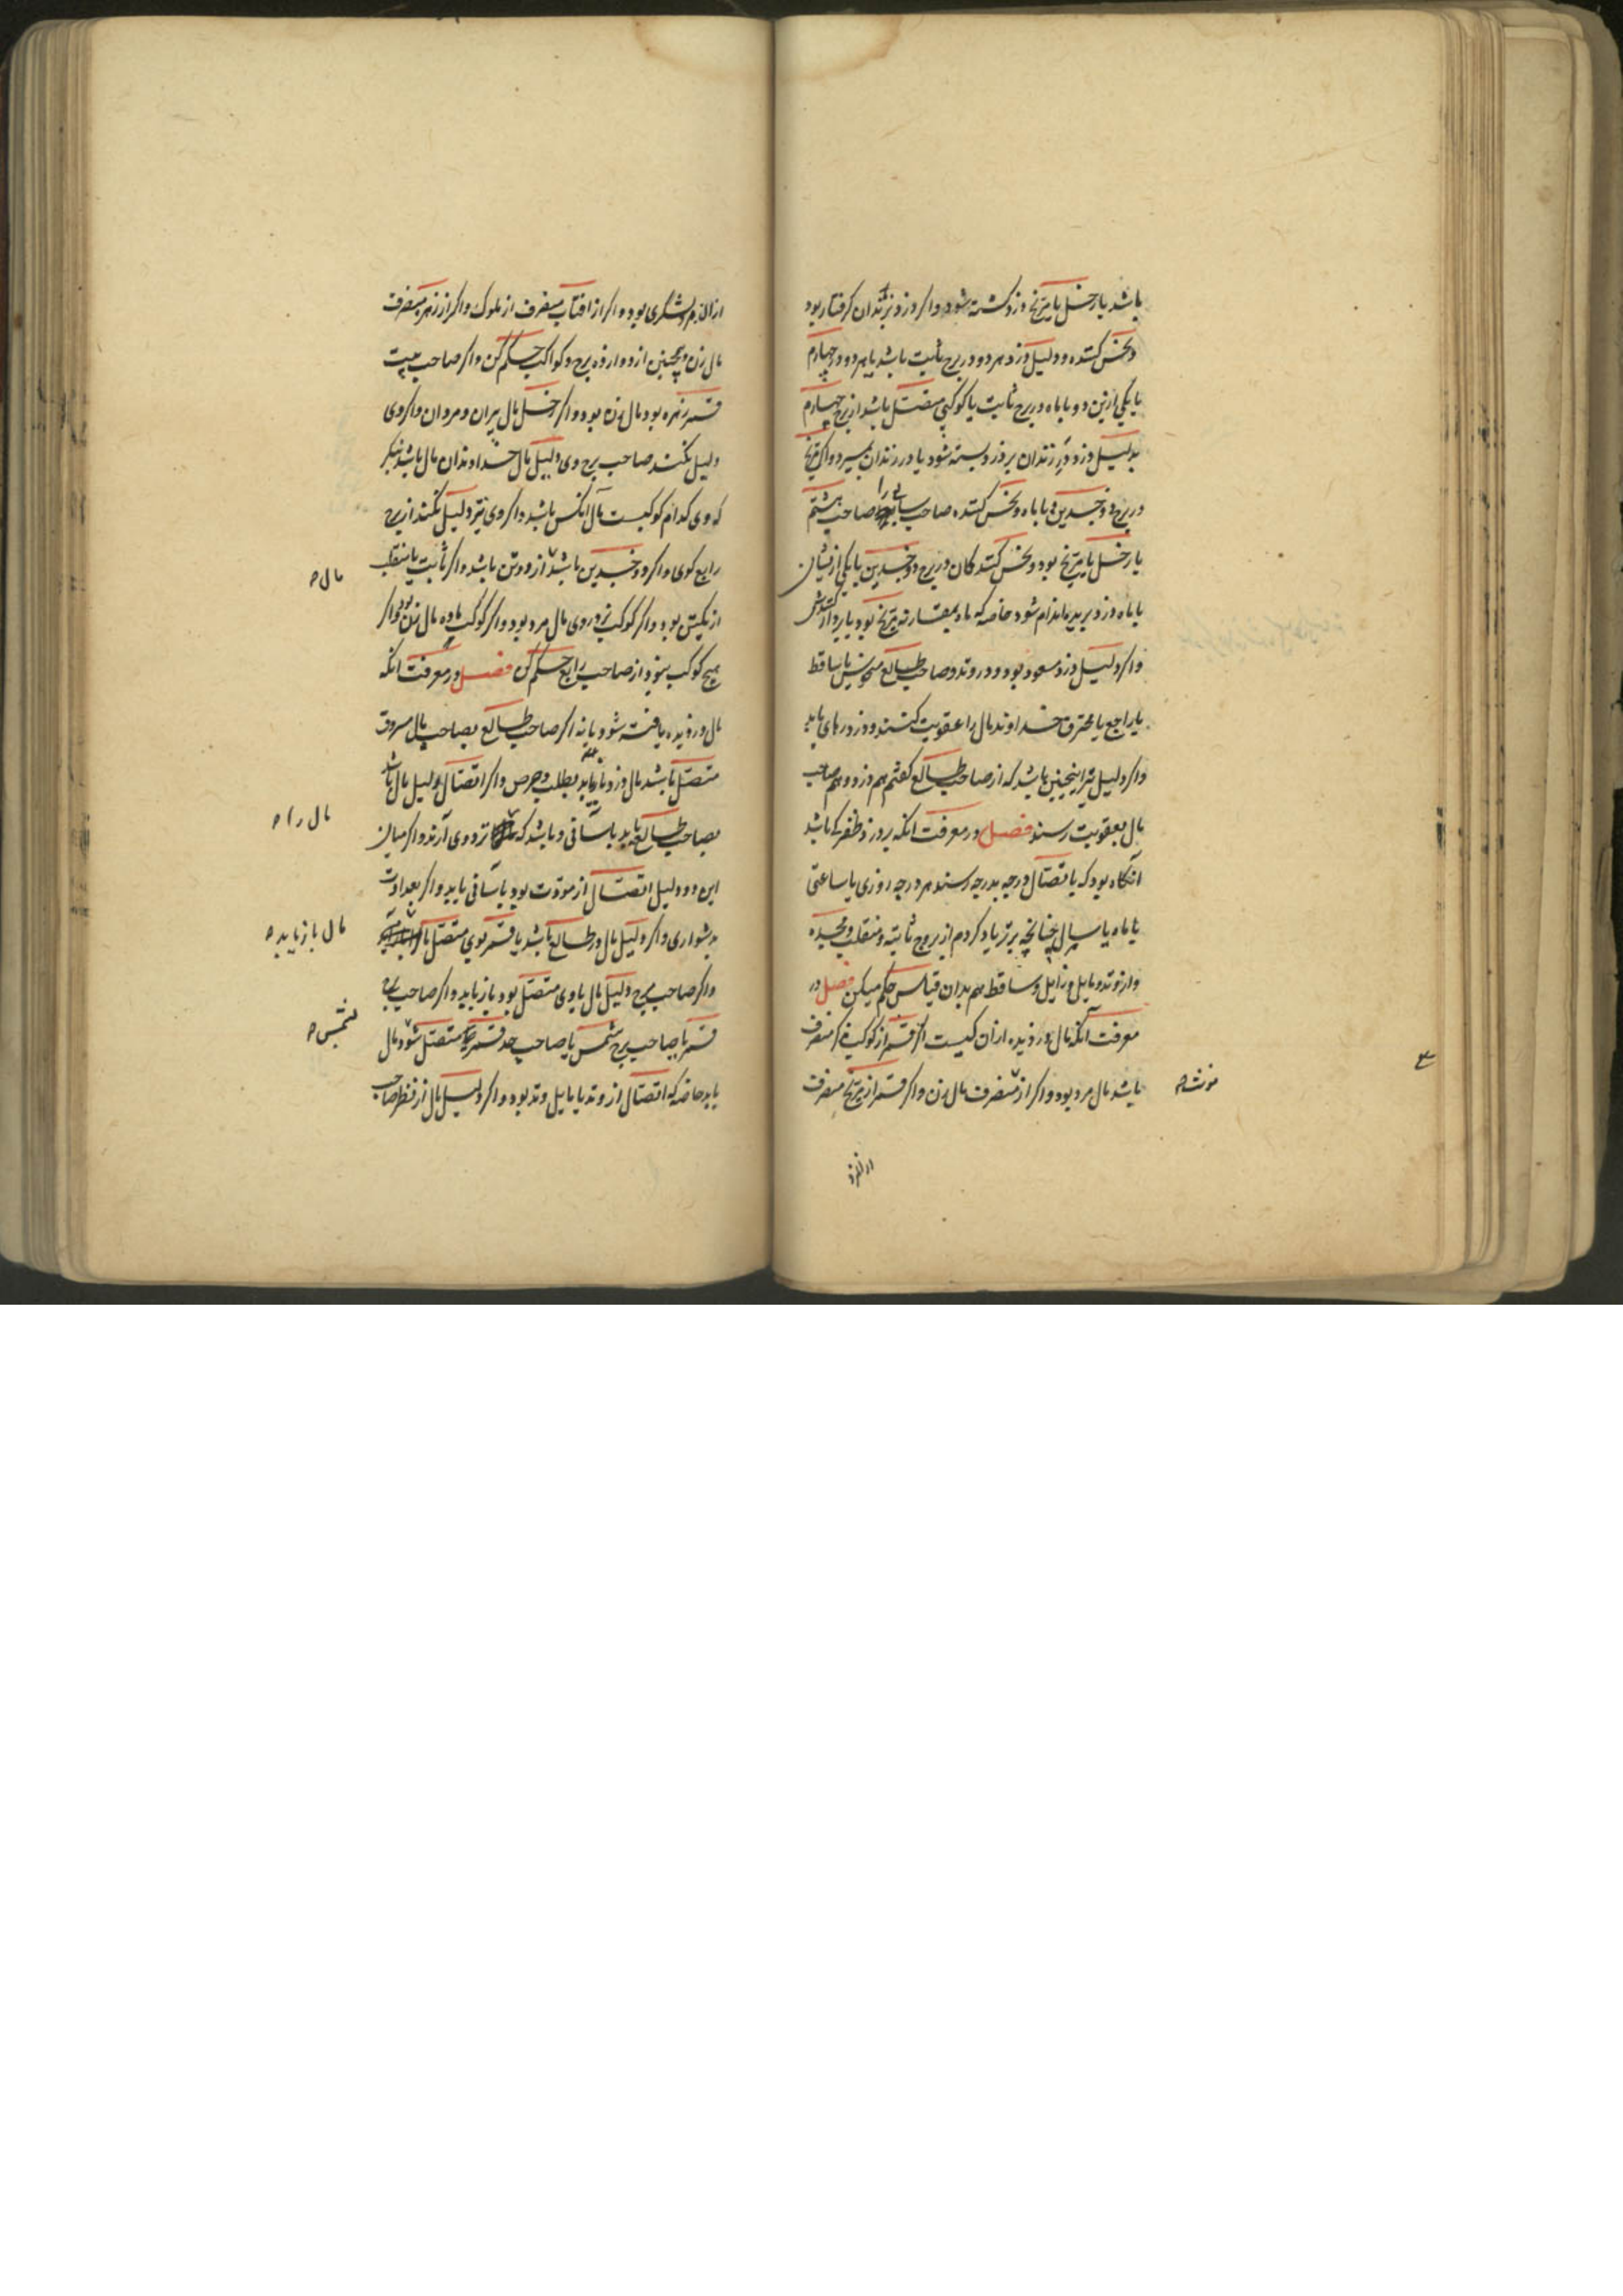 باشد یا زحل یا مریخ دزد کشته شود و اکر دزد بزندان کرفتار بود
و نحس کننده و دلیل دزد هر دو در برج ثابت باشد یا هر دو و چهارم
یا یکی ازین دو با ماه در برج ثابت یا کوکبی متصل باشد از برج چهارم
بدلیل دزد در زندان بر دزد بسته شود یا در زندان بمیرد و اکر مریخ
در برج ذو جسدین و با ماه و نحس کننده صاحب سابع را صاحب هشتم
یا زحل یا مریخ بود و نحس کنندکان در برج ذو جسدین یا یکی ازیشان
با ماه دزد بریده اندام شود خاصه که ماه بمقارنه مریخ بود یا بردارکنندش
و اکر دلیل دزد مسعود بود و در وتد و صاحب طالع منحوس یا ساقط
یا راجع یا محترق خداوند مال را عقوبت کنند و دزد رهای یابد
و اکر دلیل نیز اینچنین باشد که از صاحب طالع کفتم هم دزد و هم صاحب
مال بعقوبت رسند فصل در معرفت انکه بر دزد ظفر کی باشد
آنکاه بود که باتصال درجه بدرجه رسند هر درجه روزی یا ساعتی
یا ماه یا سال چنانچه برتر یاد کردم از بروج ثابته و منقلب و مجسده
و از وتد و مایل و زایل و ساقط هم بدان قیاس حکم میکن فصل در
معرفت آنکه مال دزدیده ازان کیست اکر قمر از کوکب نر منصرف
باشد مال مرد بود و اکر از منصرف مال زن و اکر قمر از مریخ منصرف
مونث ص
از لشکری بود و اکر از افتاب منصرف از ملوک و اکر از زهره منصرف
مال زن و همچنین از دوازده برج و کواکب حکم کن و اکر صاحب بیت
قمر زهره بود مال زن بود و اکر زحل مال پیران و مردان و اکر وی
دلیل نکند صاحب برج وی دلیل مال خداوندان مال باشد بنکر
که وی کدام کوکبست مال آنکس باشد و اکر وی نیز دلیل نکند از برج
رابع کوی و اکر ذو جسدین باشد از دو تن باشد و اکر ثابت یا منقلب
مال ص
از یکتن بود و اکر کوکب نر در وی مال مرد بود و اکر کوکب ماده مال زن بود و اکر
هیچ کوکب نبود از صاحب رابع حکم کن فصل در معرفت انکه
مال دزدیده یافته شود یا نه اکر صاحب طالع بصاحب مال مسروق
متصل باشد مال دزد یابد بطلب و حرص و اکر اتصال دلیل مال باشد
مال را ص
بصاحب طالع یابد باسانی و باشد که نزد وی آرند و اکر میان
این دو دلیل اتصال از مودت بود باسانی یابد و اکر بعداوت
بدشواری و اکر دلیل مال در طالع باشد یا قمر بوی متصل
مال باز یابد ص
و اکر صاحب برج دلیل مال با وی متصل بود باز یابد و اکر صاحب برج
قمر با صاحب برج شمس یا صاحب حد قمر متصل شود مال
بشمس ص
یابد خاصه که اتصال از وتد یا مایل وتد بود و اکر دلیل مال از نظر صاحب